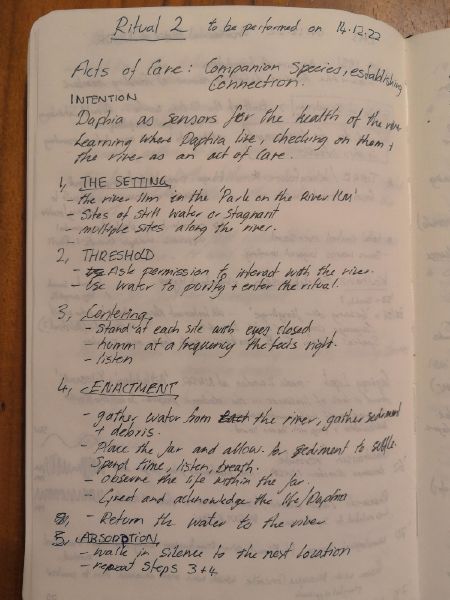 Ritual 2 to be performed on 14.12.22
Acts of Care: Companion Species, establishing
Connection.
INTENTION
Daphia as sensors for the health of the river
Learning where Daphia live, checking on them +
the river as an act of care.
1, THE SETTING
- the river Ilm in the 'Park on the River Ilm'
- Sites of Still water or Stagnant
- multiple sites along the river.
-
2, THRESHOLD
- Ask permission to interact with the river.
- Use water to purify + enter the ritual.
3, Centering
- Stand at each site with eyes closed
- humm at a frequency the feels right.
- listen
4, ENACTMENT
- gather water from the river, gather sediment
+ debris.
- Place the jar and allow for sediment to settle.
Spend time, listen, breath.
- observe the life within the jar.
- Greed and acknowledge the life/Daphnia
- Return th water to the river
5, ABSORPTION
- walk in silence to the next location
- repeat steps 3+4